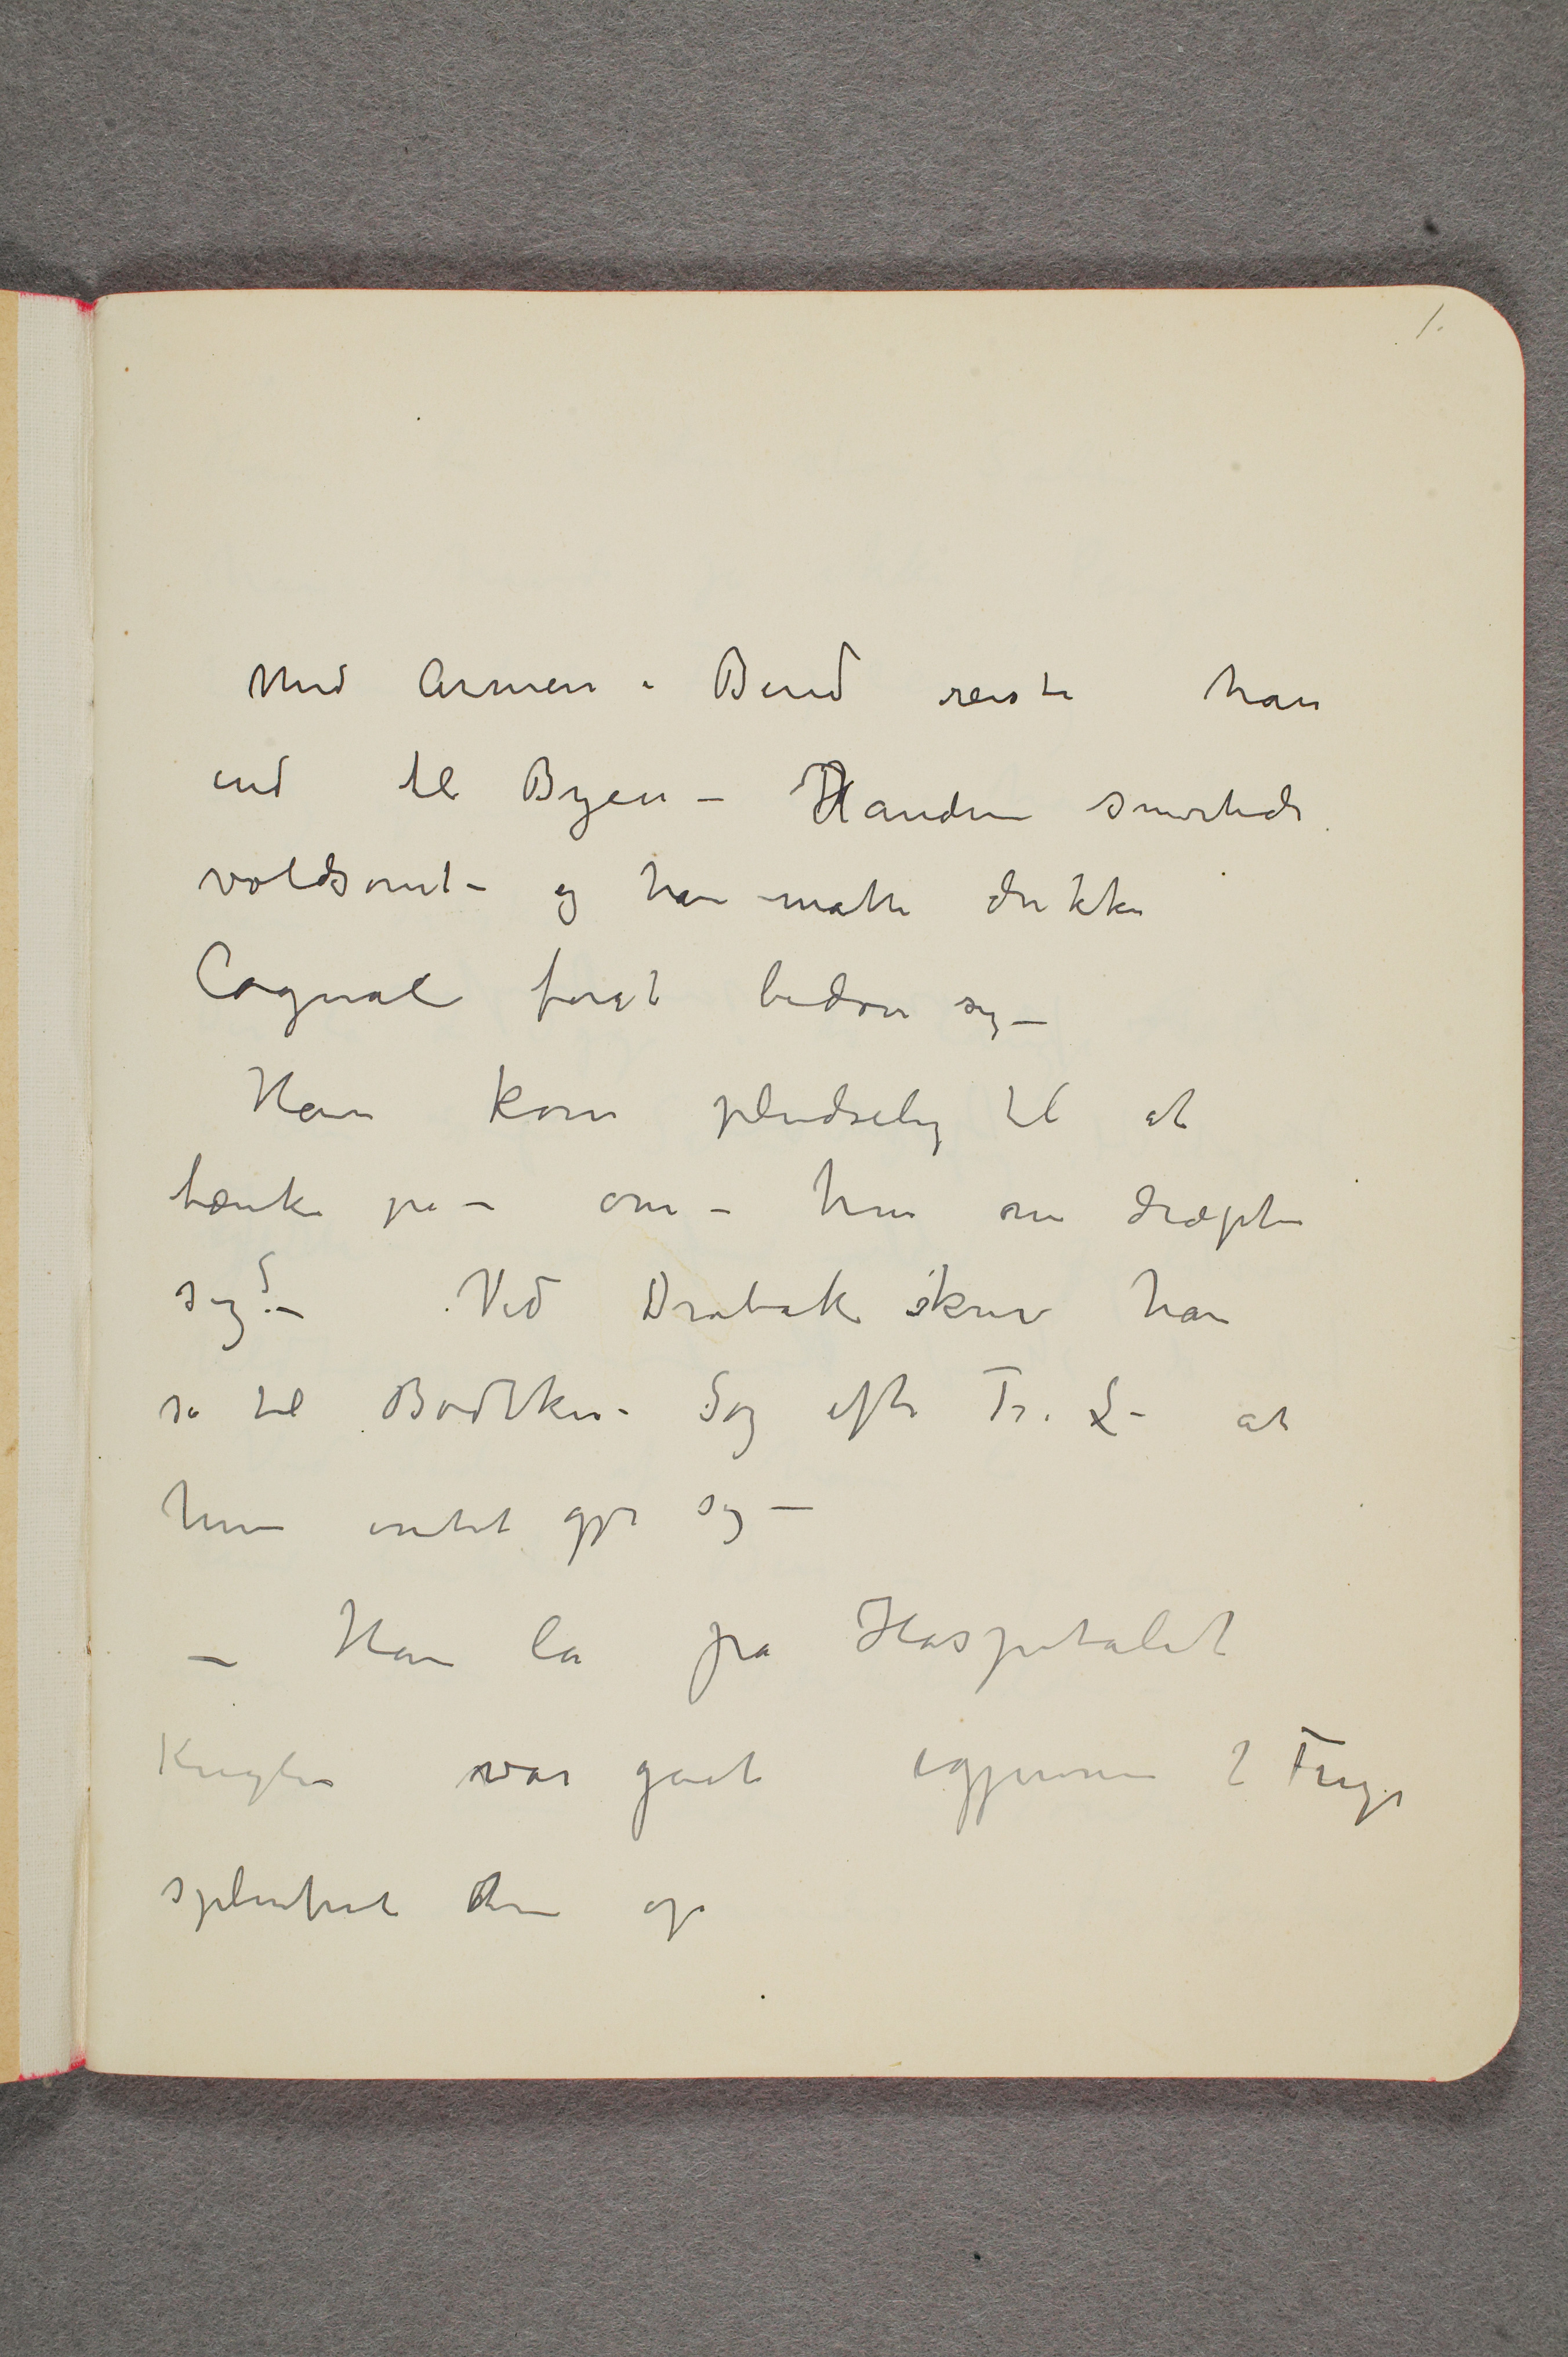 1.
Med Armen i Bind reiste han
ind til Byen – Handen smertede
voldsomt – og han matte drikke
Cognac forat bedøve sig –
Han kom pludselig til at
tænke pa – om – hun nu dræpte
sig? – Ved Drøbak skrev han
sa til Bødtker – Søg efter Fr. L – at
hun intet gjør sig –
– Han la pa Hospitalet
Kuglen var gaat igjennem 2 Finger
splintret dem op